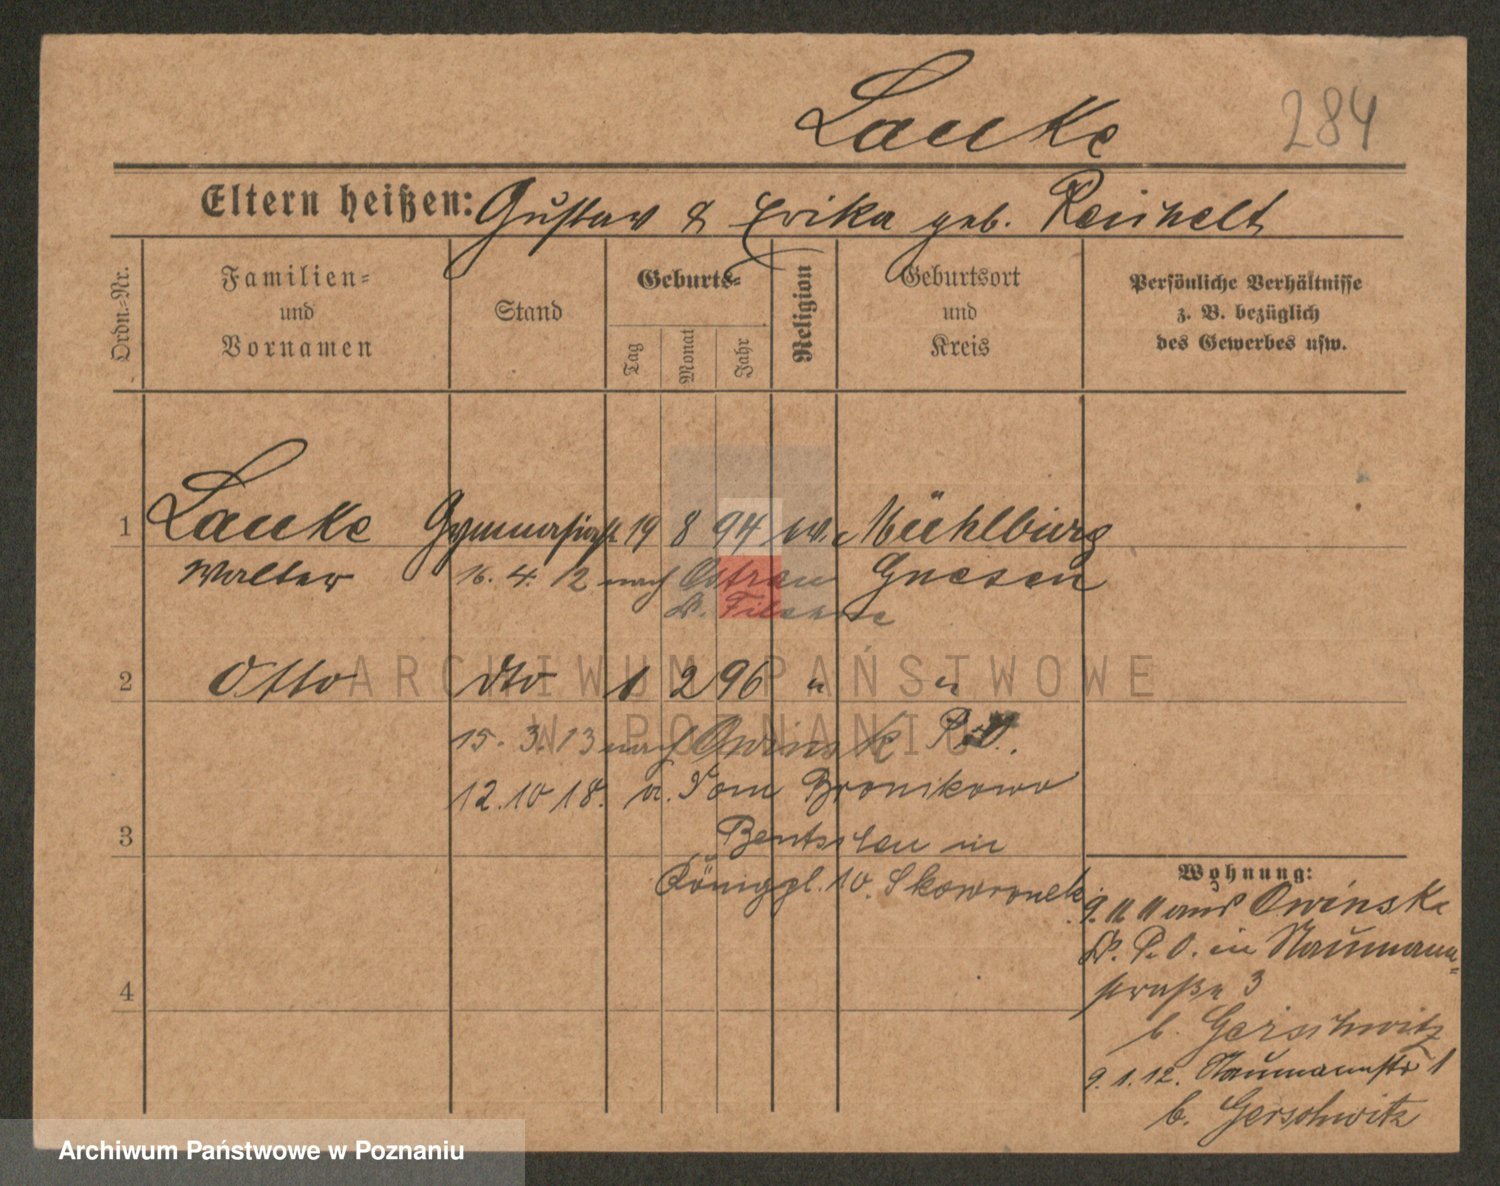 Lauke 284
Eltern heißen: Gustav & Erika geb. Reichelt
Ordn.-Nr.
Familien-
und
Vornamen
Stand
Geburts-
Tag
Monat
Jahr
Religion
Geburtsort
und
Kreis
Persönliche Verhältnisse
z. B. bezüglich
des Gewerbes usw.
1 Lauke Gymnasiast 19 8 94 ev. Mühlburg
Walter 16. 4. 12 nach Ostrau Gnesen
b. Filehne
2 Otto dto 1 2 96 " "
15. 3. 13 nach Owinsk P.O.
12. 10 18. a. Dom Bronikowo
3 Bentschen in
Königpl. 10. Skowronek
Wohnung:
9. 11 11 aus Owinsk
Kr. P. O. in Naumann-
straße 3
b. Gerschwitz
9. 1. 12. Naumannstr 1
b. Gerschwitz
4
ARCHIWUM PAŃSTWOWE
W POZNANIU
Archiwum Państwowe w Poznaniu